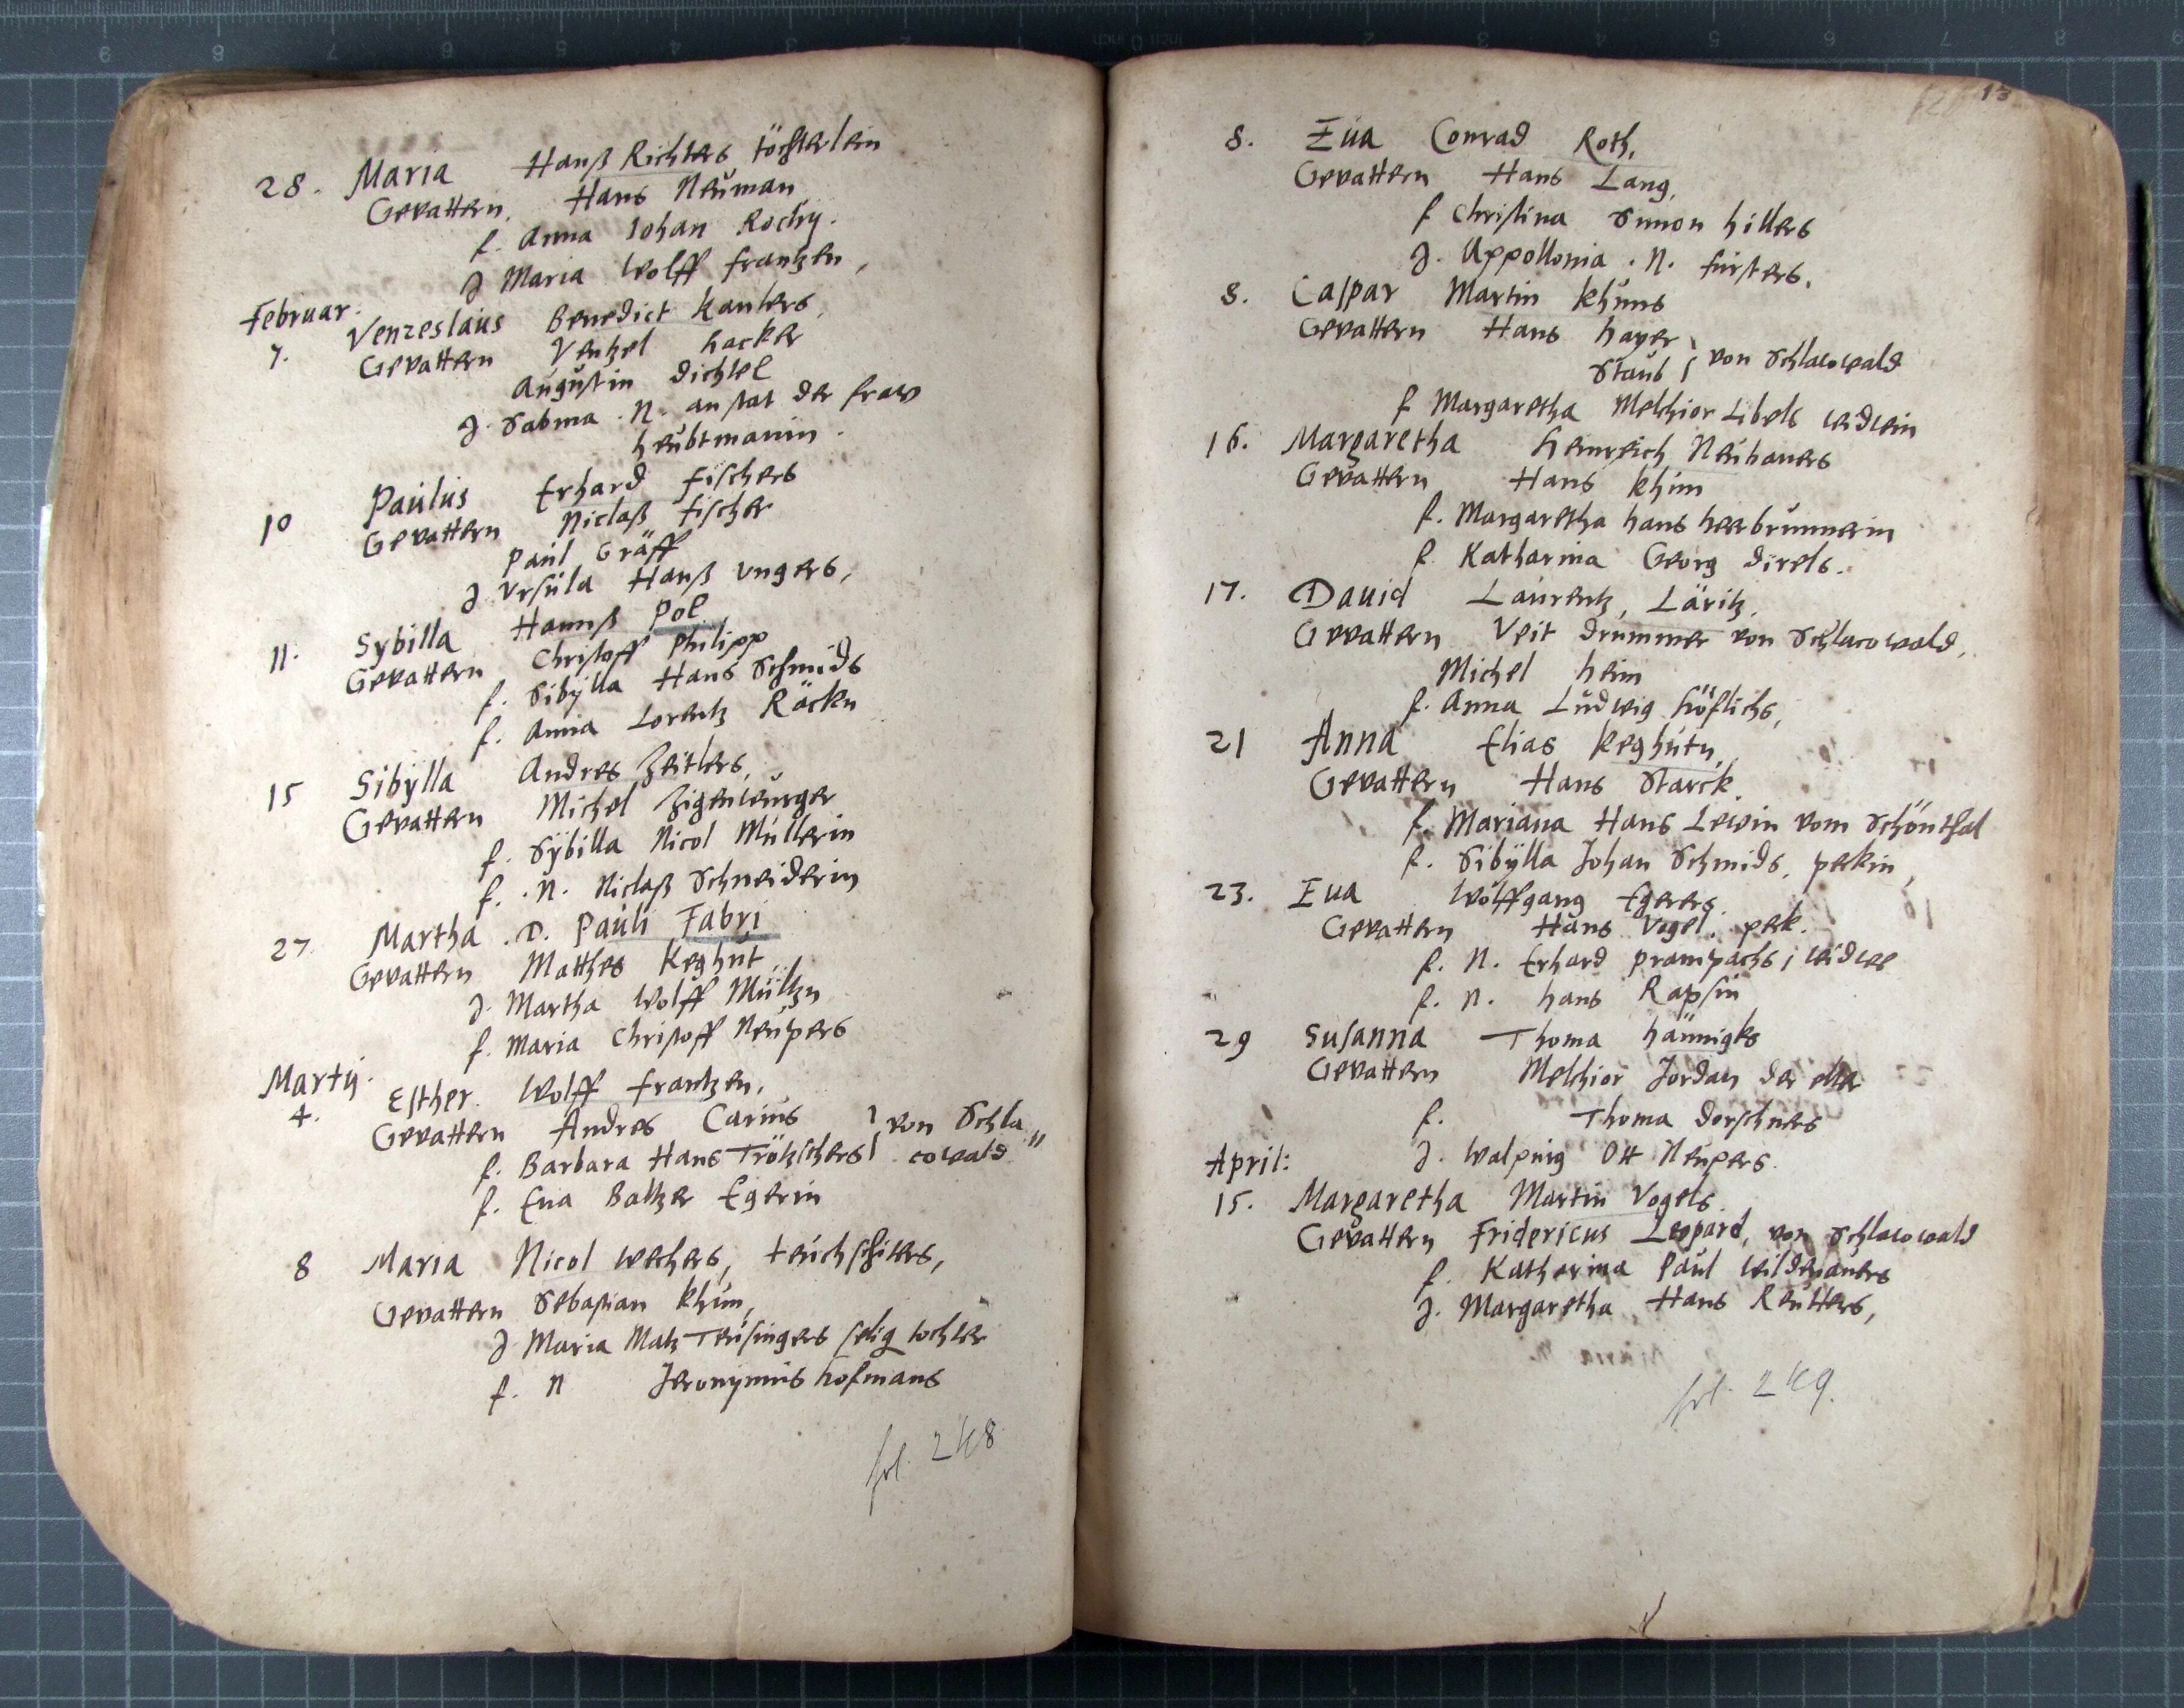 28. Maria Hanß Richters töchterlein
Gevattern. Hans Neüman
f. Anna Johan Rochij.
J Maria Wolff frantzen,
Februar:
7. Venzeslaüs Benedict Kanlers,
Gevattern Ventzel hacker
Augüstin dichtel
J. Sabina .N. anstat der fraw
heübtmanin.
10 Paülüs Erhard fischers
Gevattern Niclaß fischer
Paül Gräff
J Vrsüla Hanß Vngers,
11. Sybilla Hannß Pol
Gevattern Christoff Philipp
f. Sibÿlla Hans Schmids
f. Anna Lorentz Räckn
15 Sibÿlla Andres Zeitlers,
Gevattern Michel Zigenleürger
f. Sÿbilla Nicol Müllerin
f. .N. Niclaß Schneiderin
27 Martha .D. Paüli Fabri
Gevattern Matthes Keghüt,
J. Martha Wolff Mültzn
f. Maria Christoff Neüpers
Martij.
4. Esther. Wolff frantzen,
Gevattern Andres Carius } von Schla
f. Barbara Hans Trötzschers } cowald "
f. Eua Baltzer Egerin
8 Maria Nicol wechers, teüchschiters,
Gevattern Sebastian Khün,
J Maria Matz Teüsingers selig tochter
f. N Jeronymüs hofmans
fol. 248
13
8. Eüa Conrad Roth,
Gevattern Hans Lang,
f Christina Simon hillers
J. Appollonia .N. fürsters,
8. Caspar Martin Khüns
Gevattern Hans hayer }
Staüb } von Schlacowald
f Margaretha Melchior Libels widwin
16. Margaretha heinreich Neübauers
Gevattern Hans Khün
f. Margaretha hans heerbrunnerin
f. Katharina Georg direls.
17. Dauid Laürentz, Läritz,
Gevattern Veit drümmer von Schlacowald,
Michel hein
f. Anna Lüdwig höflichs,
21 Anna Elias Keghütn,
Gevattern Hans Starck,
f. Mariana Hans Lewin vom Schönthal
f. Sibÿlla Johan Schmids, pekin,
23. Eua Wolffgang Egerers.
Gevattern Hans Vogel, pek.
f. N. Erhard prampachs, widwe
f. N. hans Rapsin
29 Susanna Thoma hännigks
Gevattern Melchior Jordan der elter
f. Thoma dorschners
J. Walpürg Ott Neüpers.
April:
15. Margaretha Martin Vogels.
Gevattern Fridericus Leopard, von Schlacowald
f. Katharina Paül wildenauers
J. Margaretha Hans Reütters,
fol. 249.